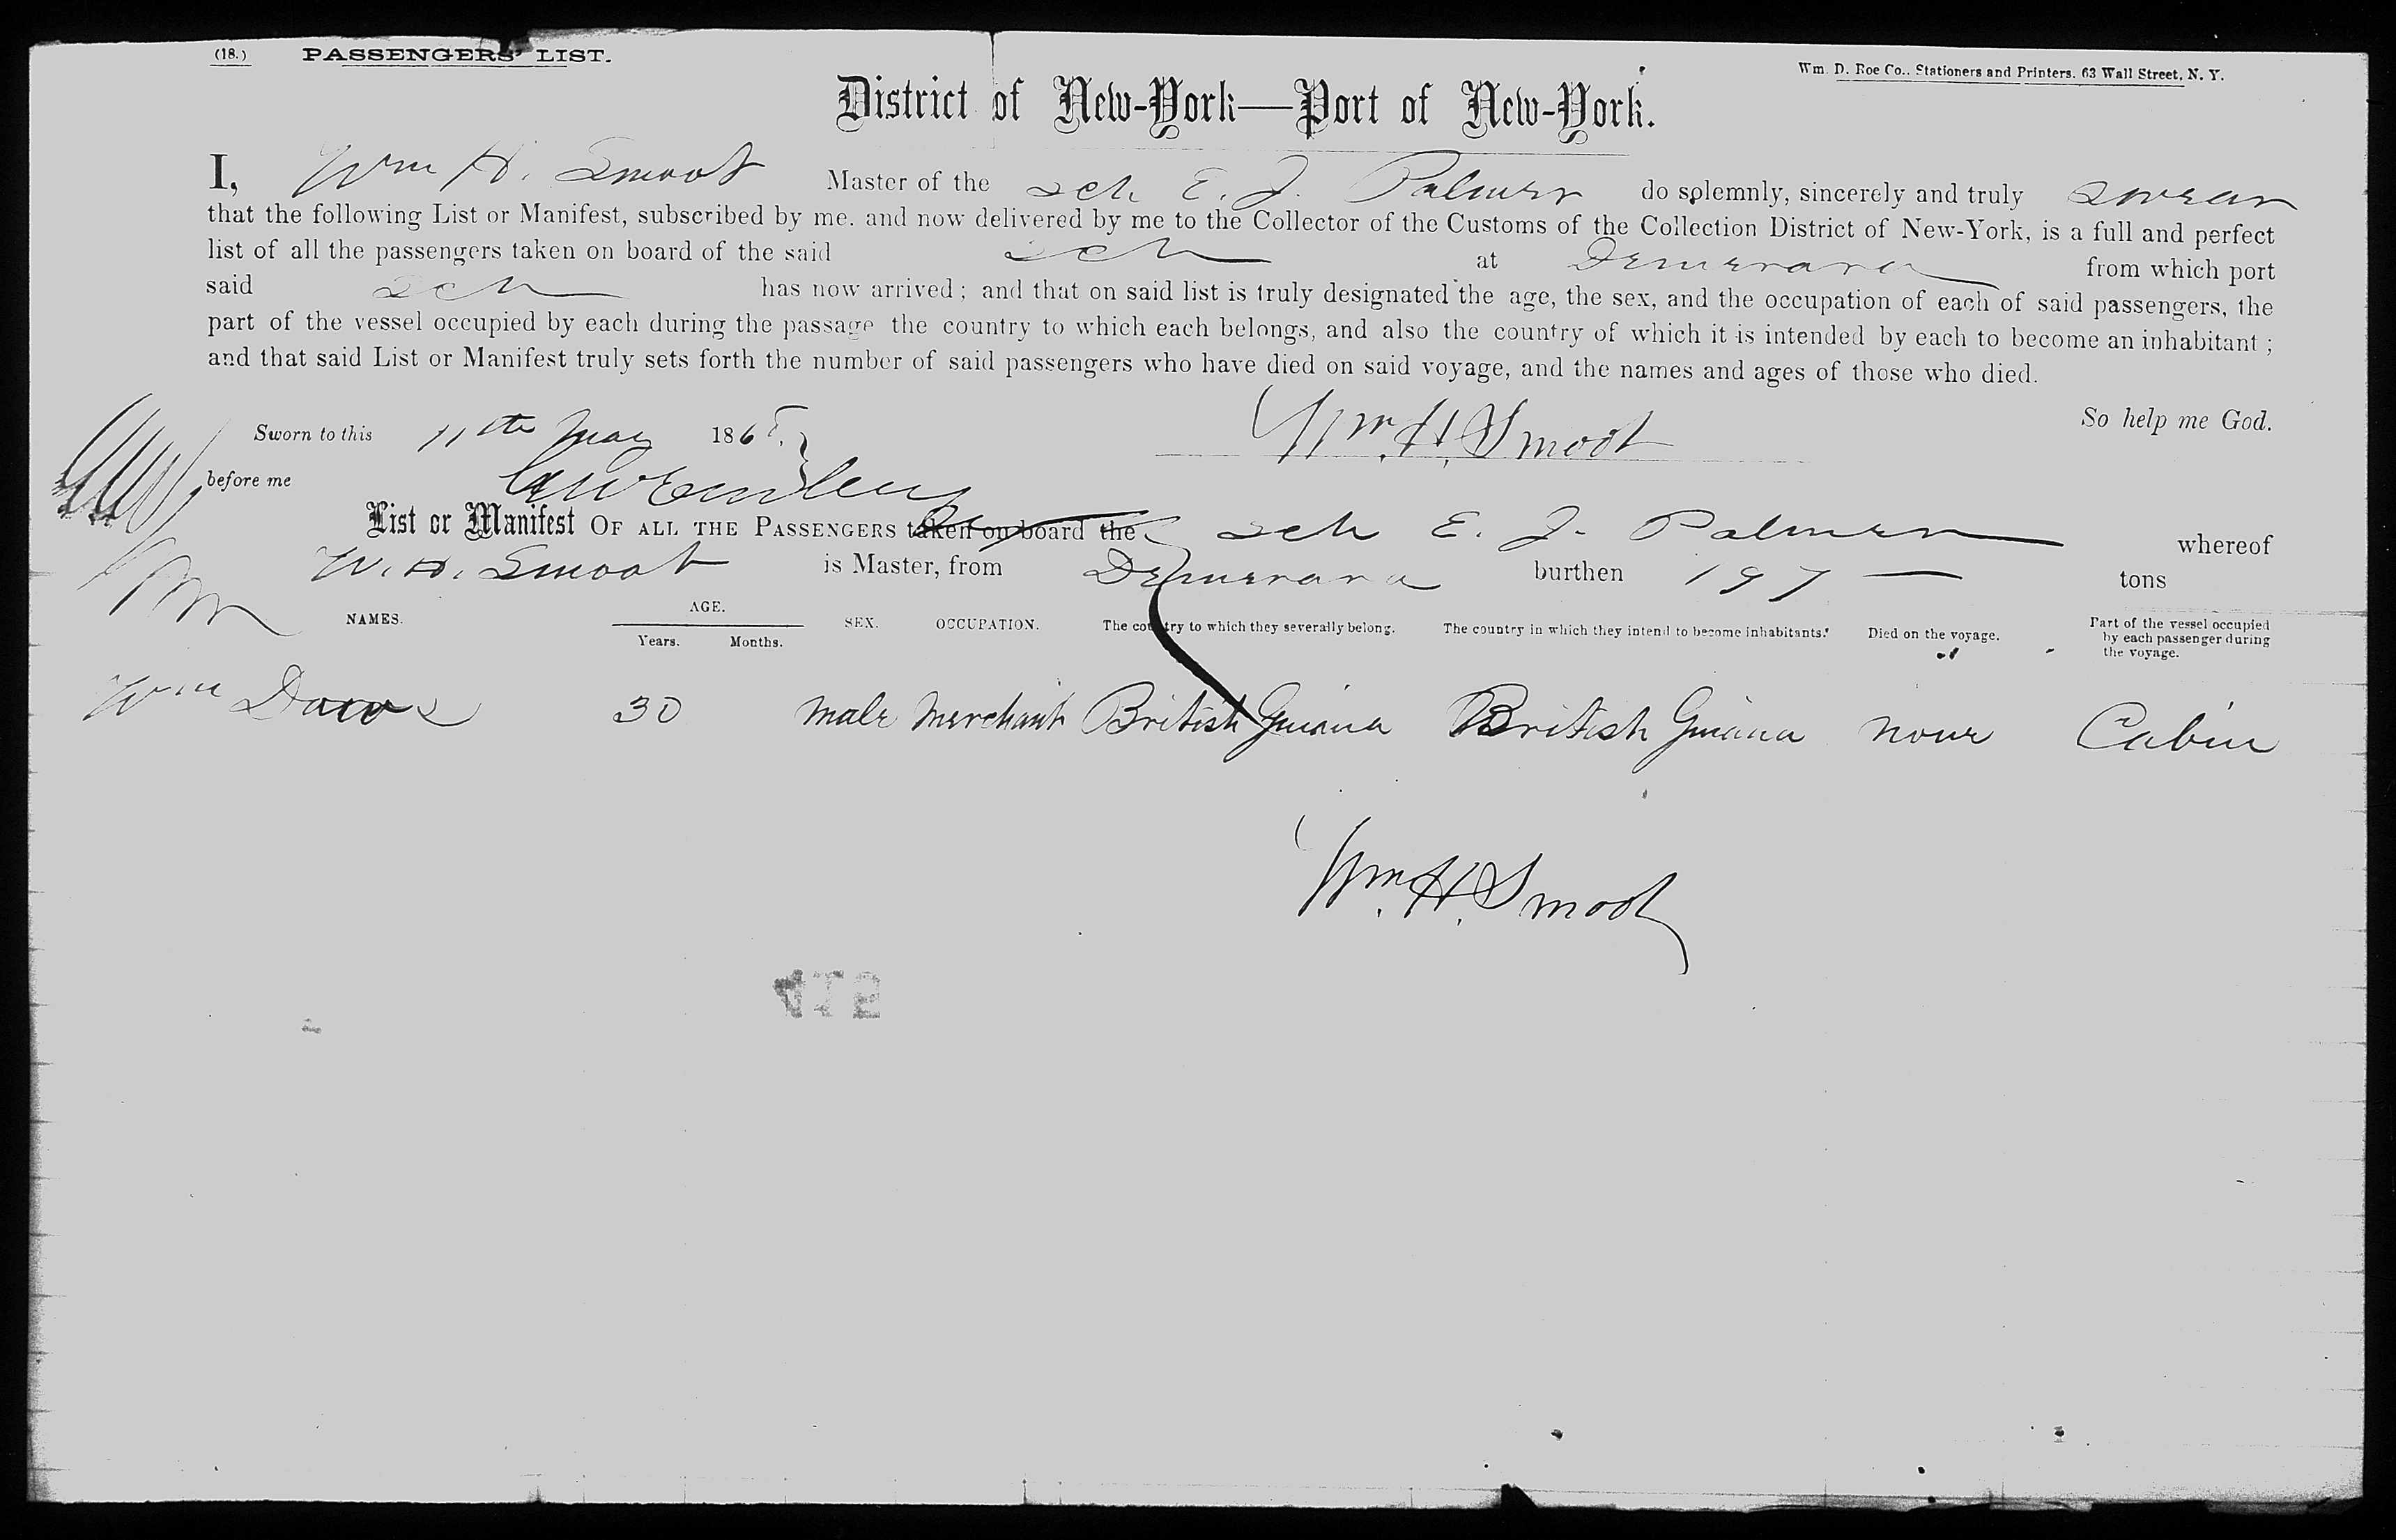 (18.) PASSENGERS' LIST.
Wm. D. Roe Co., Stationers and Printers. 63 Wall Street, N. Y.
District of New-York—Port of New-York.
I, Wm H. Smoot Master of the sch E. J. Palmer do solemnly, sincerely and truly swear
that the following List or Manifest, subscribed by me, and now delivered by me to the Collector of the Customs of the Collection District of New-York, is a full and perfect
list of all the passengers taken on board of the said sch at Demerara from which port
said sch has now arrived; and that on said list is truly designated the age, the sex, and the occupation of each of said passengers, the
part of the vessel occupied by each during the passage the country to which each belongs, and also the country of which it is intended by each to become an inhabitant;
and that said List or Manifest truly sets forth the number of said passengers who have died on said voyage, and the names and ages of those who died.
So help me God.
Sworn to this 11th May 186
Wm. H. Smoot
before me
List or Manifest OF ALL THE PASSENGERS taken on board the sch E. J. Palmer whereof
W. H. Smoot is Master, from Demerara burthen 197 tons
NAMES. AGE. Years. Months. SEX. OCCUPATION. The country to which they severally belong. The country in which they intend to become inhabitants. Died on the voyage. Part of the vessel occupied by each passenger during the voyage.
Wm Daws 30 male Merchant British Guiana British Guiana none Cabin
Wm. H. Smoot
472